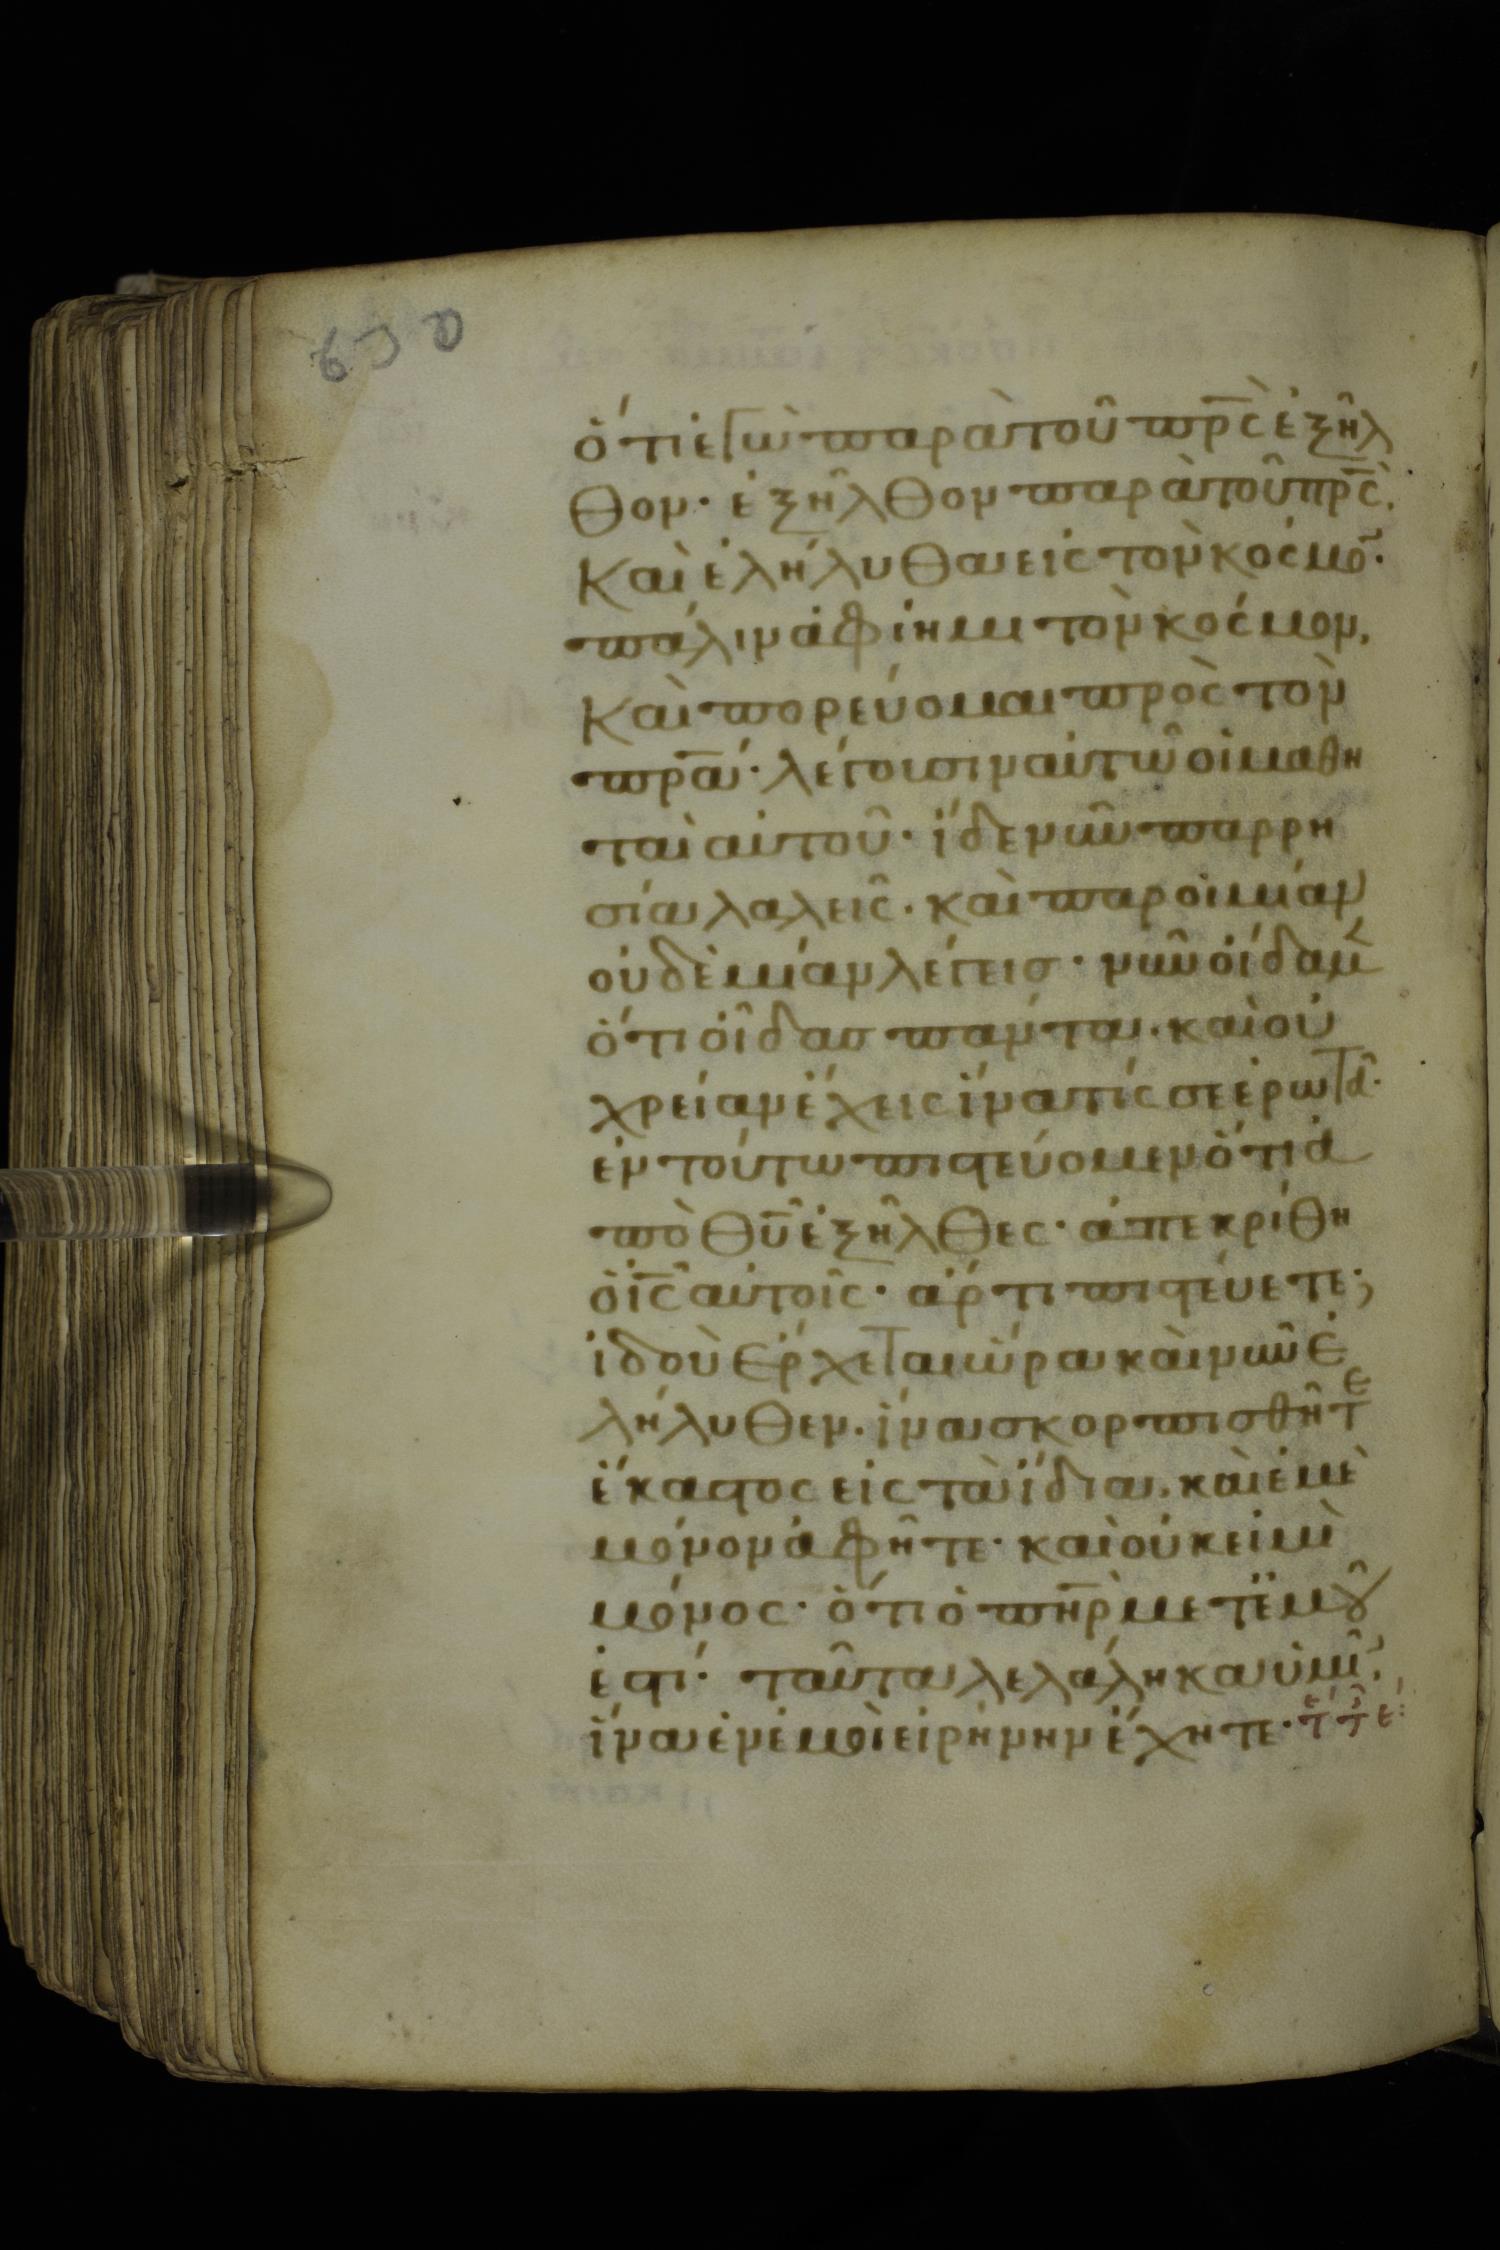 ὅτι ἐγὼ παρὰ τοῦ πρ̅ς ἐξῆλ
θον· ἐξῆλθον παρὰ τοῦ πρ̅ς.
καὶ ἐλήλυθα εἰς τὸν κόσμο̅·
πάλιν ἀφίημι τὸν κόσμον,
καὶ πορεύομαι πρὸς τὸν
πρ̅α· λέγουσιν αὐτῶ οἱ μαθη
ταὶ αὐτοῦ· ἴδε νῦν παρρη
σία λαλεῖς. καὶ παροιμίαν
οὐδὲμίαν λέγεισ· νῦν οἴδαμ̅
ὅτι οἶδασ πάντα. καὶ οὐ
χρείαν ἔχεις ἵνα τίς σε ἐρωτᾶ·
ἐν τούτω πιστεύομεν ὅτι ἀ
πὸ θ̅υ ἐξῆλθες· ἀπεκρίθη
ὁ ι̅ς αὐτοῖς· ἄρτι πιστεύετε;
ἰδοὺ ἔρχεται ὥρα καὶ νῦν ἐ
λήλυθεν. ἵνα σκορπισθῆτε
ἕκαστος εἰς τὰ ἴδια, καὶ ἐμὲ
μόνον ἀφῆτε· καὶ οὐκ εἰμὶ
μόνος· ὅτι ὁ πη̅ρ μετ ἐμοῦ
ἐστί· ταῦτα λελάληκα ὑμῖ̅,
ἵνα ἐν ἐμοὶ εἰρήνην ἔχητε·